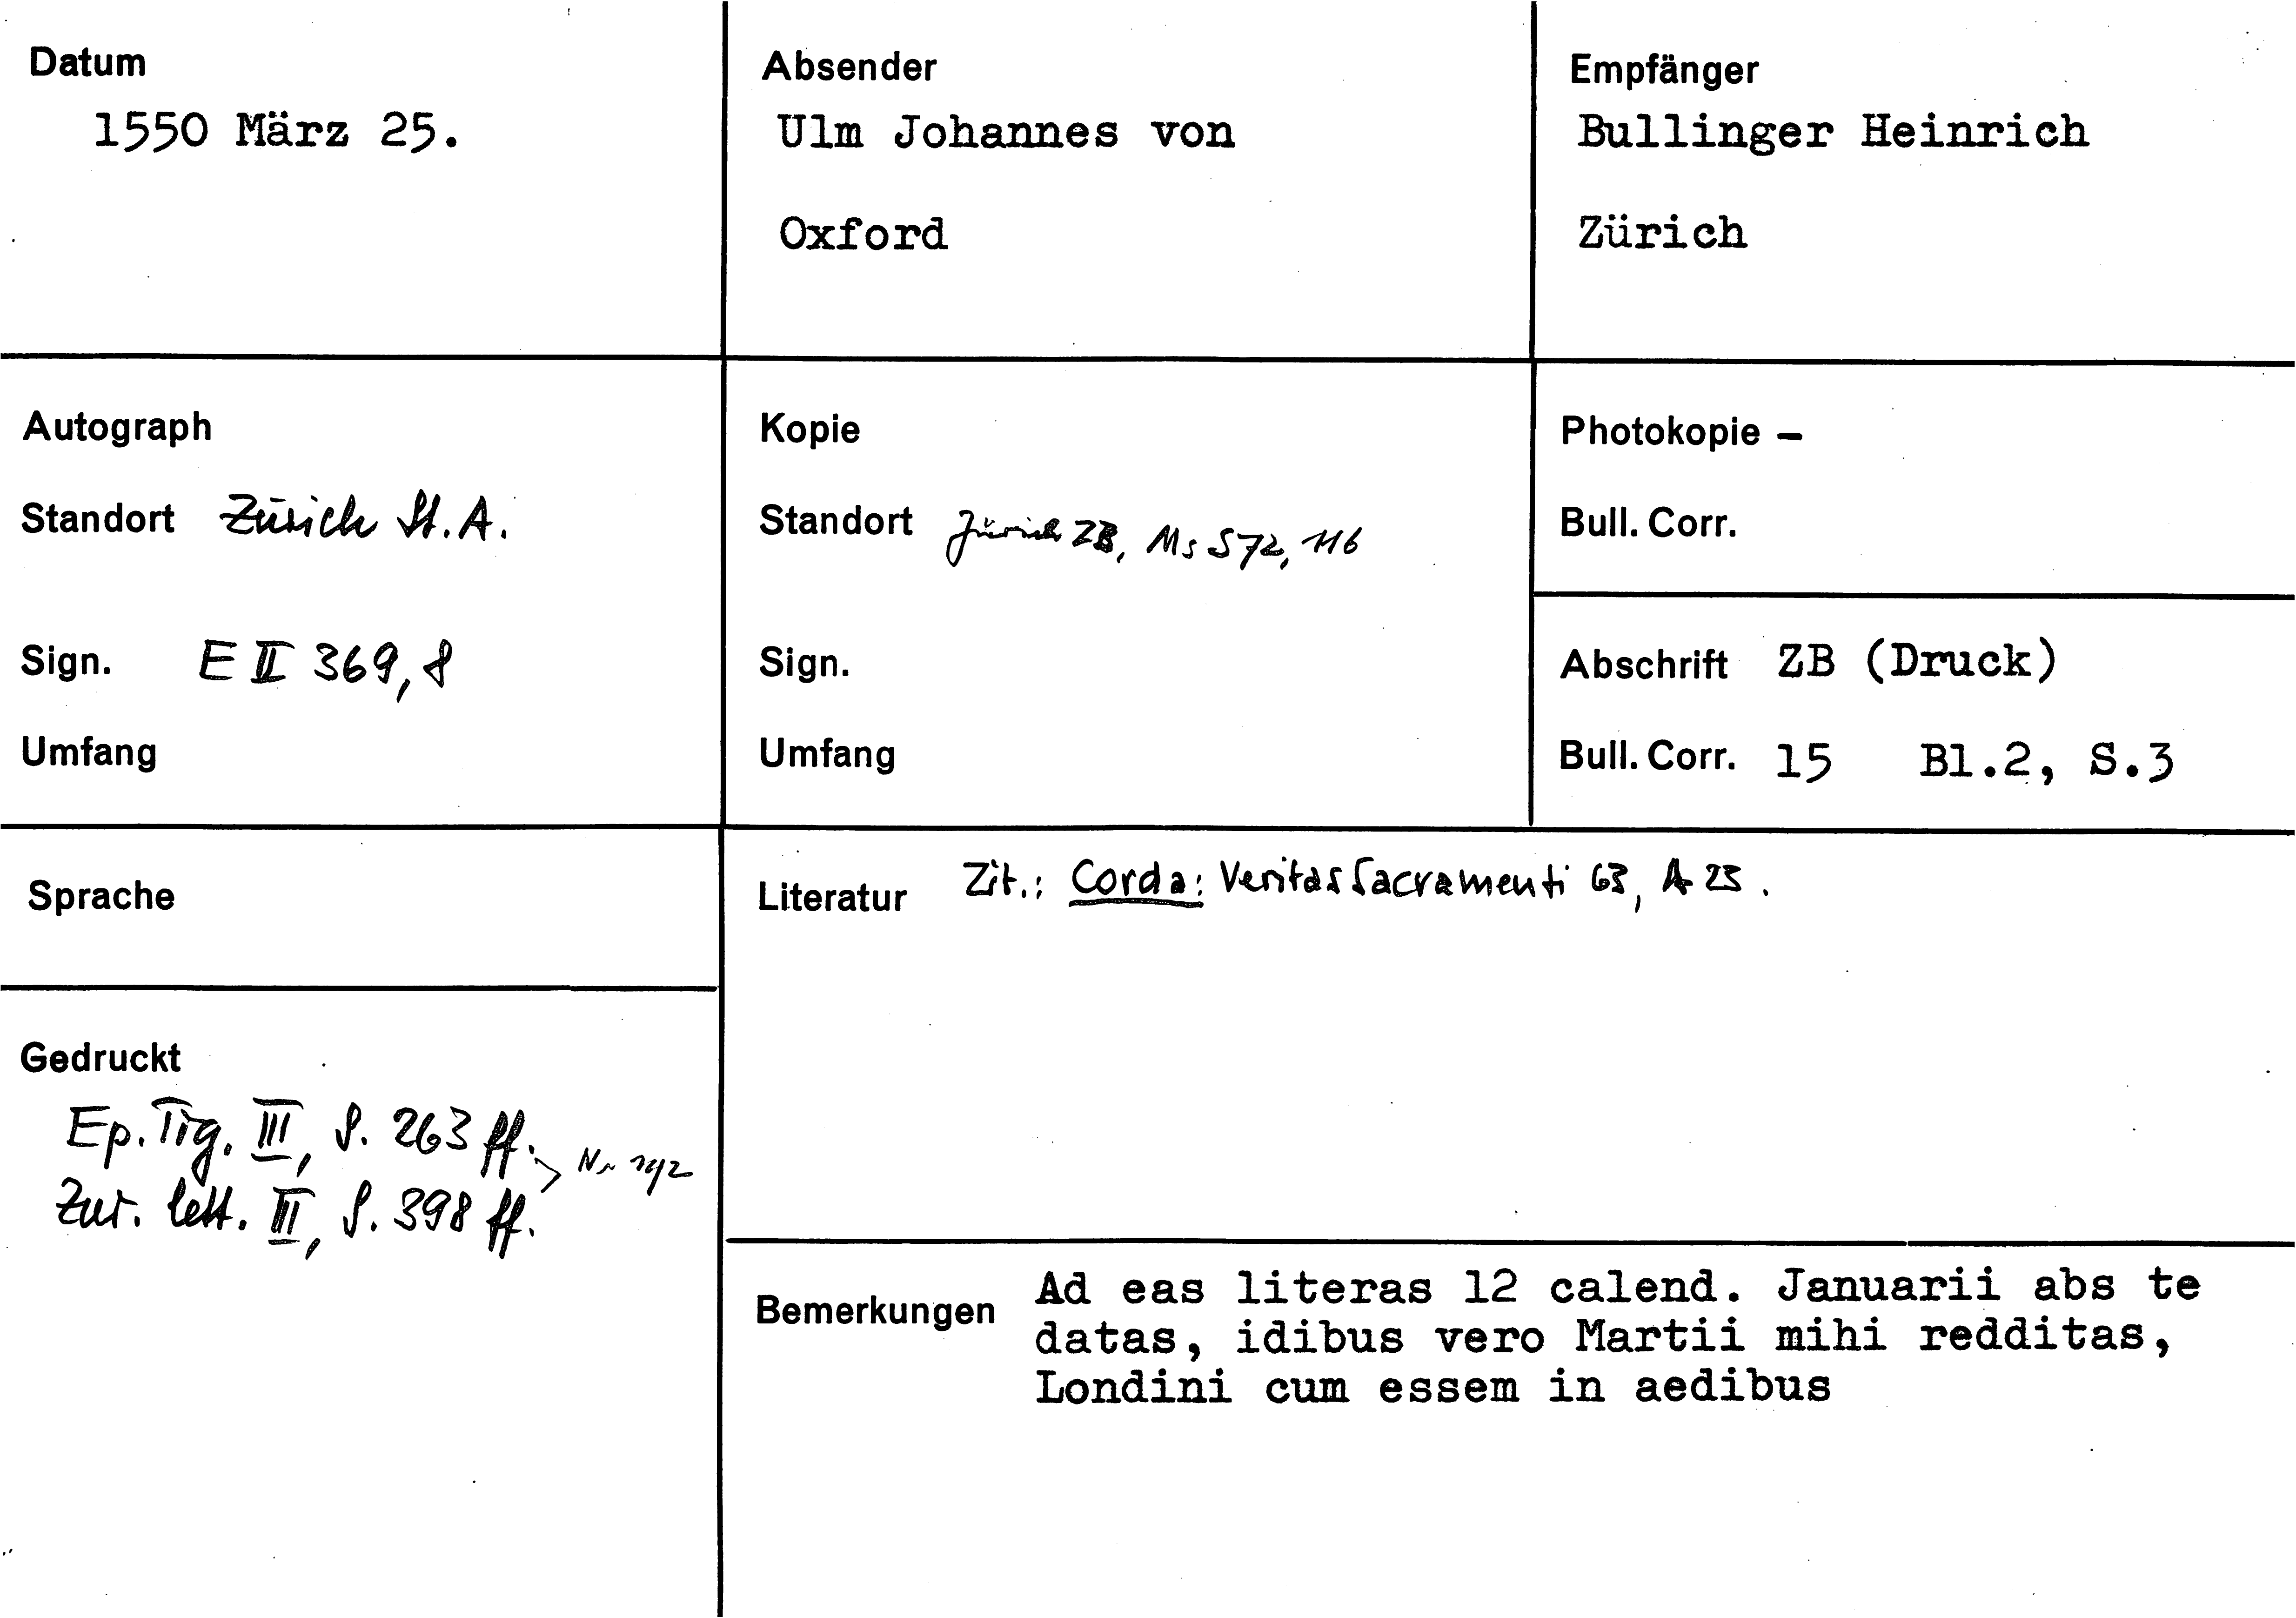 Datum
1550 März 25.
Absender
Ulm Johannes von
Oxford
Empfänger
Bullinger Heinrich
Zürich
Autograph
Standort Zürich St. A.
Sign. E II 369, 8
Umfang
Kopie
Standort Zürich ZB, Ms S 72, 116
Sign.
Umfang
Photokopie –
Bull. Corr.
Abschrift ZB (Druck)
Bull. Corr. 15 Bl.2, S.3
Sprache
Gedruckt
Ep. Tig. III, S. 263 ff.
Zur. lett. III, S. 398 ff.
Literatur Zit.: Corda: Veritas Sacramenti 63, A 23.
Bemerkungen Ad eas literas 12 calend. Januarii abs te
datas, idibus vero Martii mihi redditas,
Londini cum essem in aedibus